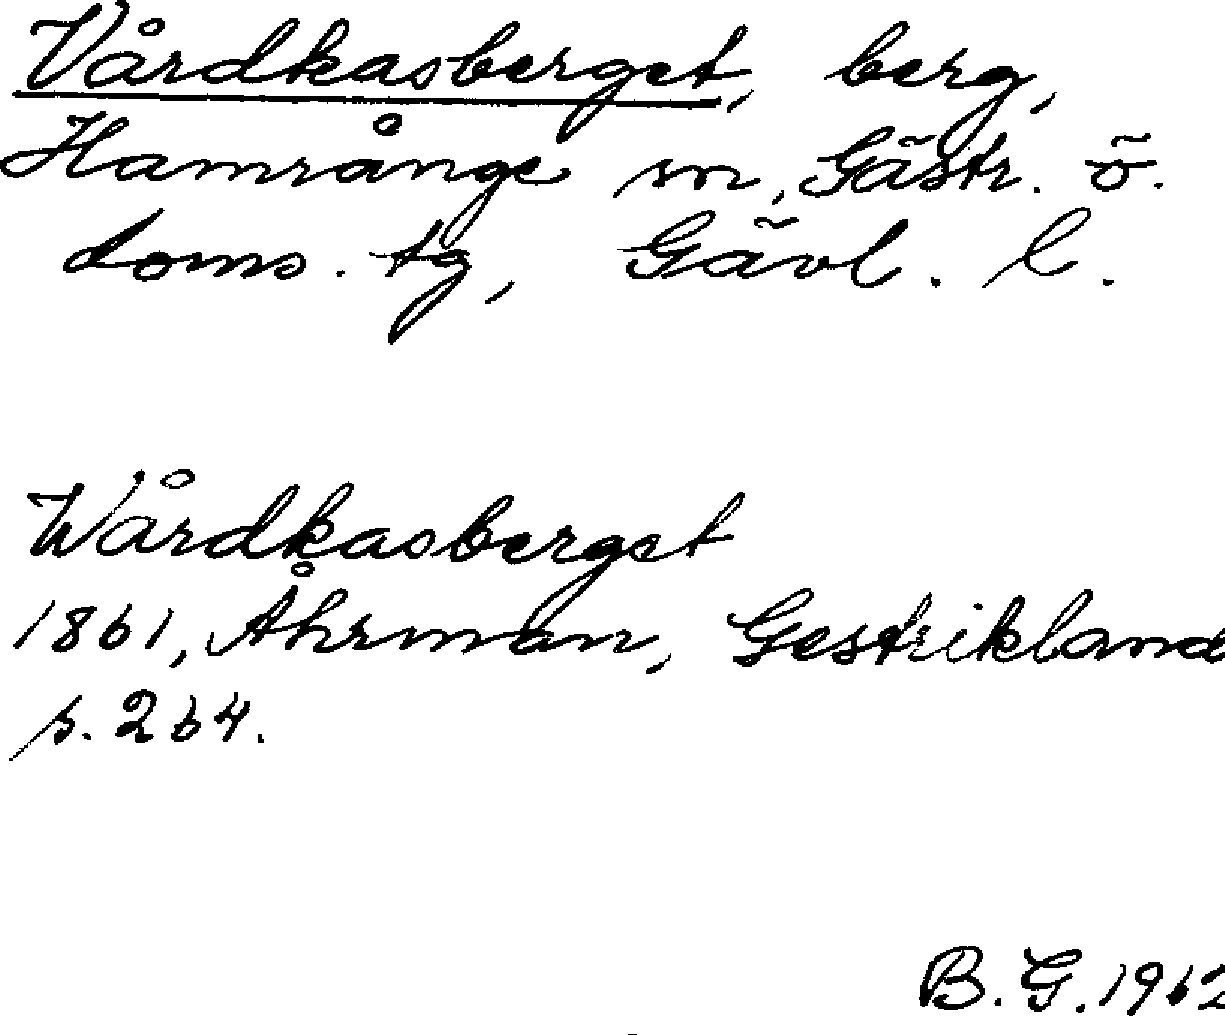 Vårdkasberget, berg,
Hamrånge sn, Gästr. ö.
doms. tg, Gävl. l.
Wårdkasberget
1861, Åhrman, Gestrikland
s. 264.
B. G. 1962